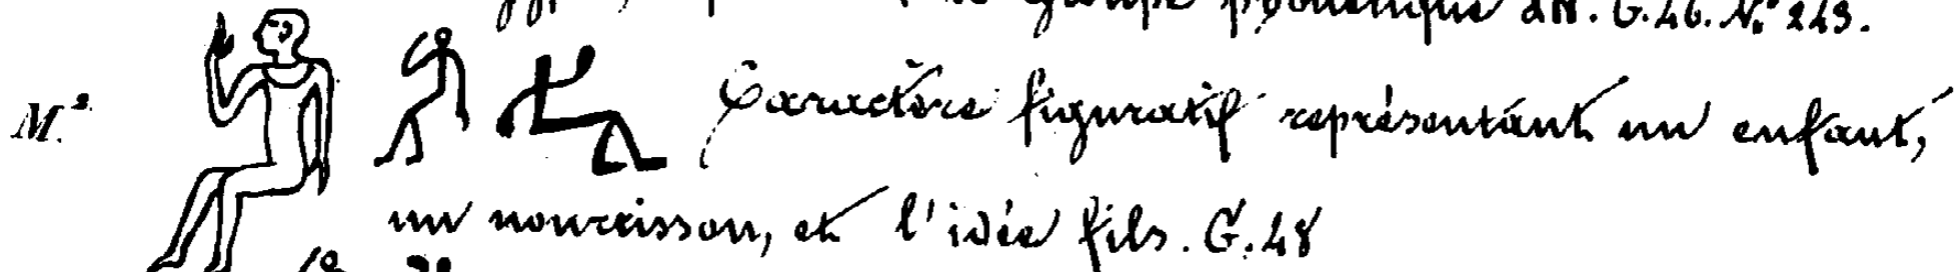 groupe phonétique an. G. 46. N.° 243.
M.² Caractère figuratif représentant un enfant,
un nourrisson, et l'idée fils. G. 48